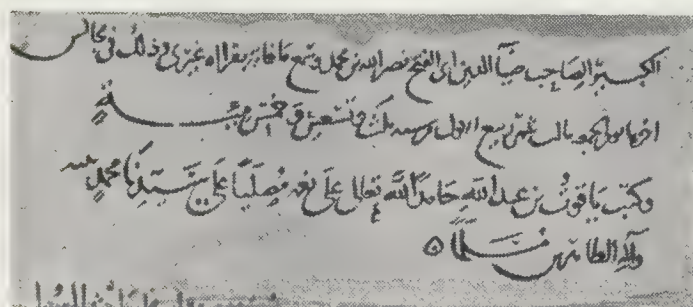 الكبير الصاحب ضيآ الدين ابى الفتح نصر الله بن محمد وسمع ما فاته بقراءة غيرى وذلك فى مجالس
اخرها يوم الجمعه ثالث عشر ربيع الاول سنه ثلث وتسعين وخمس مئة
وكتب ياقوت بن عبد الله حامدا الله تعالى على نعمه مصليا على سيدنا محمد
وآله الطاهرين مسلما